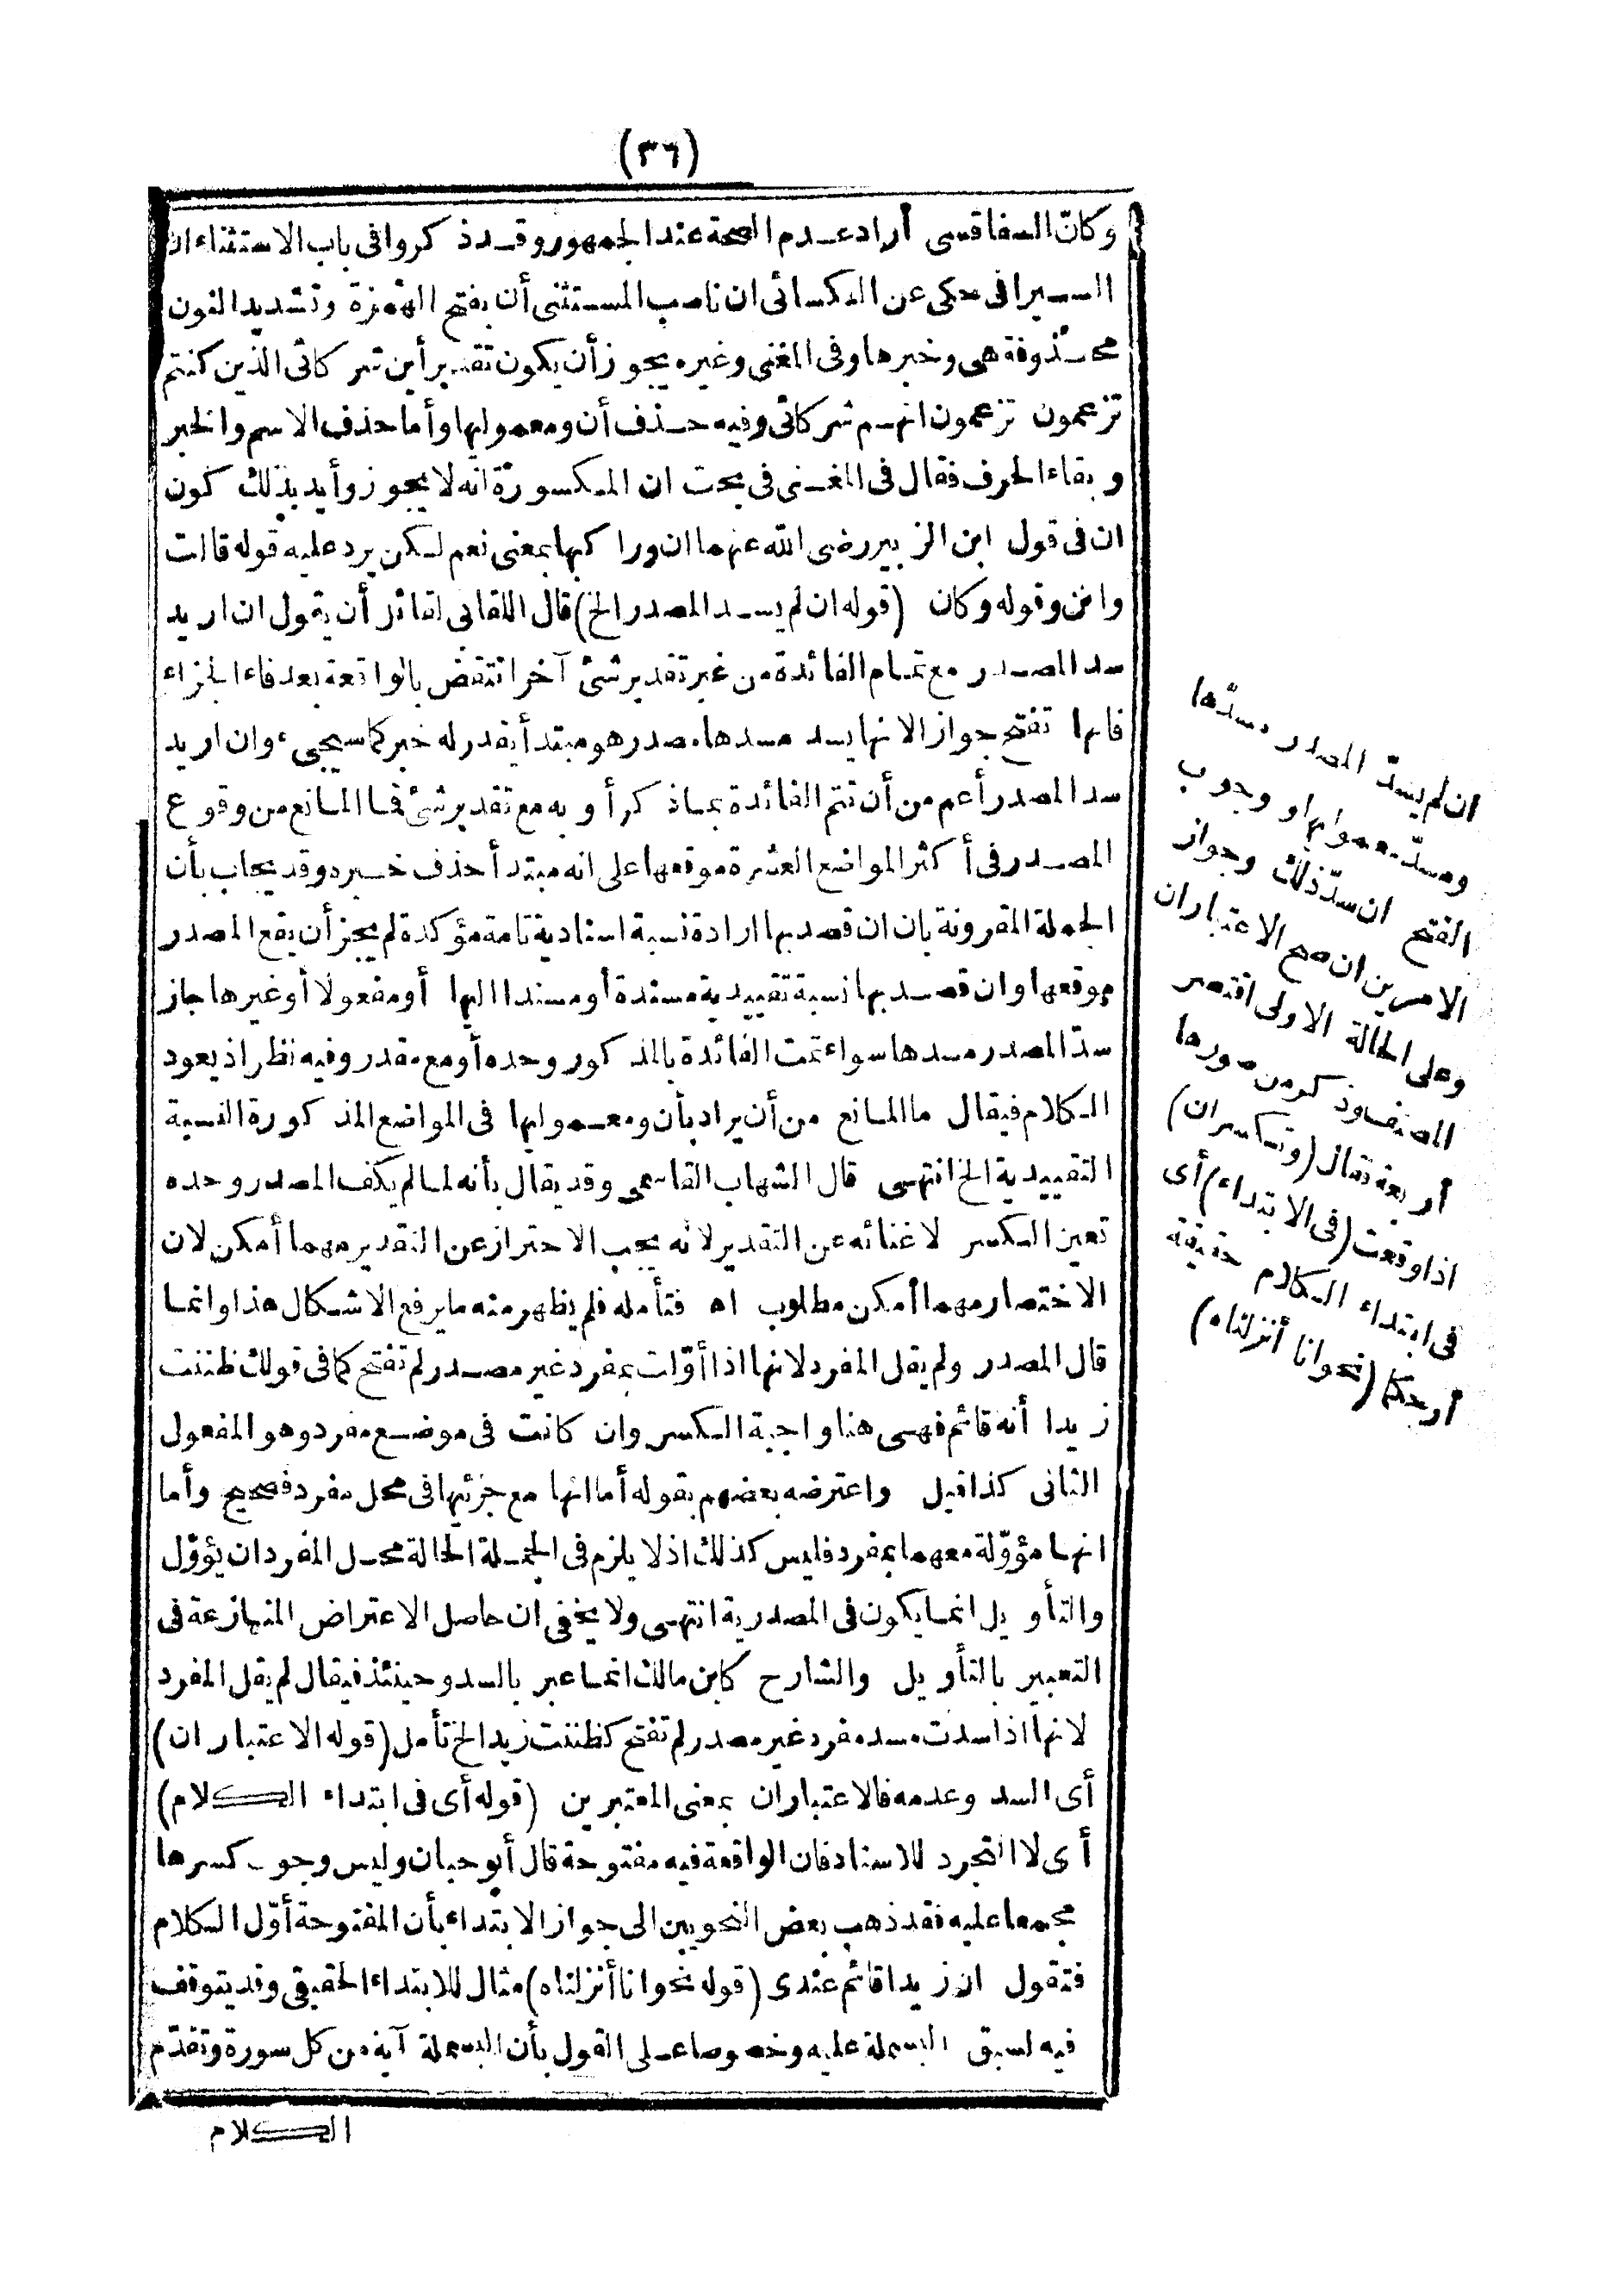 (٣٦)
وكانّ السفاقسى أراد عدم الصحة عند الجمهور وقد ذكروا فى باب الاستثناء ان
السيرافى حكى عن الكسائى ان ناصب المستثنى أن بفتح الهمزة وتشديد النون
محذوفة هى وخبرها وفى المغنى وغيره يجوز أن يكون تقدير أين شركائى الذين كنتم
تزعمون تزعمون انهم شركائى وفيه حذف أن ومعموليها وأما حذف الاسم والخبر
وبقاء الحرف فقال فى المغنى فى بحث ان المكسورة انه لا يجوز وأيد بذلك كون
ان فى قول ابن الزبير رضى الله عنهما ان وراكبها بمعنى نعم لكن يرد عليه قوله قالت
وانن وقوله وكان (قوله ان لم يسد المصدر الخ) قال اللقانى لقائل أن يقول ان اريد
سد المصدر مع تمام الفائدة من غير تقدير شئ آخر انتقض بالواقعة بعد فاء الجزاء
فانها تفتح جواز الانها يسد مسدها مصدر هو مبتدأ يقدر له خبر كما سيجىء وان اريد
سد المصدر أعم من أن تتم الفائدة بما ذكر أو به مع تقدير شئ فما المانع من وقوع
المصدر فى أكثر المواضع العشرة موقعها على انه مبتدأ حذف خبره وقد يجاب بأن
الجملة المقرونة بان ان قصد بها ارادة نسبة اسنادية تامة مؤكدة لم يجز أن يقع المصدر
موقعها وان قصد بها نسبة تقييدية مسندة أو مسندا اليها أو مفعولا أو غيرها جاز
سدّ المصدر مسدها سواء تمت الفائدة بالمذكور وحده أو مع مقدر وفيه نظر اذ يعود
الكلام فيقال ما المانع من أن يراد بأن ومعموليها فى المواضع المذكورة النسبة
التقييدية الخ انتهى قال الشهاب القاسمى وقد يقال بأنه لما لم يكف المصدر وحده
تعين الكسر لاغنائه عن التقدير لانه يجب الاحتراز عن التقدير مهما أمكن لان
الاختصار مهما أمكن مطلوب اه فتأمله فلم يظهر منه ما يرفع الاشكال هذا وانما
قال المصدر ولم يقل المفرد لانها اذا أوّلت بمفرد غير مصدر لم تفتح كما فى قولك ظننت
زيدا أنه قائم فهى هنا واجبة الكسر وان كانت فى موضع مفرد وهو المفعول
الثانى كذا قيل واعترضه بعضهم بقوله أما انها مع جزئيها فى محل مفرد فصحيح وأما
انها مؤوّلة معهما بمفرد فليس كذلك اذ لا يلزم فى الجملة الحالة محل المفرد ان يؤوّل
والتأويل انما يكون فى المصدرية انتهى ولا يخفى ان حاصل الاعتراض المنازعة فى
التعبير بالتأويل والشارح كابن مالك انما عبر بالسد وحينئذ فيقال لم يقل المفرد
لانها اذا سدت مسد مفرد غير مصدر لم تفتح كظننت زيدا الخ تأمل (قوله الاعتباران)
أى السد وعدمه فالاعتباران بمعنى المعتبرين (قوله أى فى ابتداء الكلام)
أى لا التجرد للاسناد فان الواقعة فيه مفتوحة قال أبو حيان وليس وجوب كسرها
مجمعا عليه فقد ذهب بعض النحويين الى جواز الابتداء بأن المفتوحة أوّل الكلام
فتقول ان زيدا قائم عندى (قوله نحو انا أنزلناه) مثال للابتداء الحقيقى وقد يتوقف
فيه لسبق البسملة عليه وخصوصا على القول بأن البسملة آية من كل سورة وتقدّم
الكلام
ان لم يسدّ المصدر مسدّها
ومسدّ معموليها و وجوب
الفتح ان سدّ ذلك وجواز
الامرين ان صح الاعتباران
وعلى الحالة الاولى اقتصر
المصنف وذكر من صورها
أربعة فقال (وتكسران)
اذا وقعت (فى الابتداء) أى
فى ابتداء الكلام حقيقة
أو حكما (نحو انا أنزلناه)